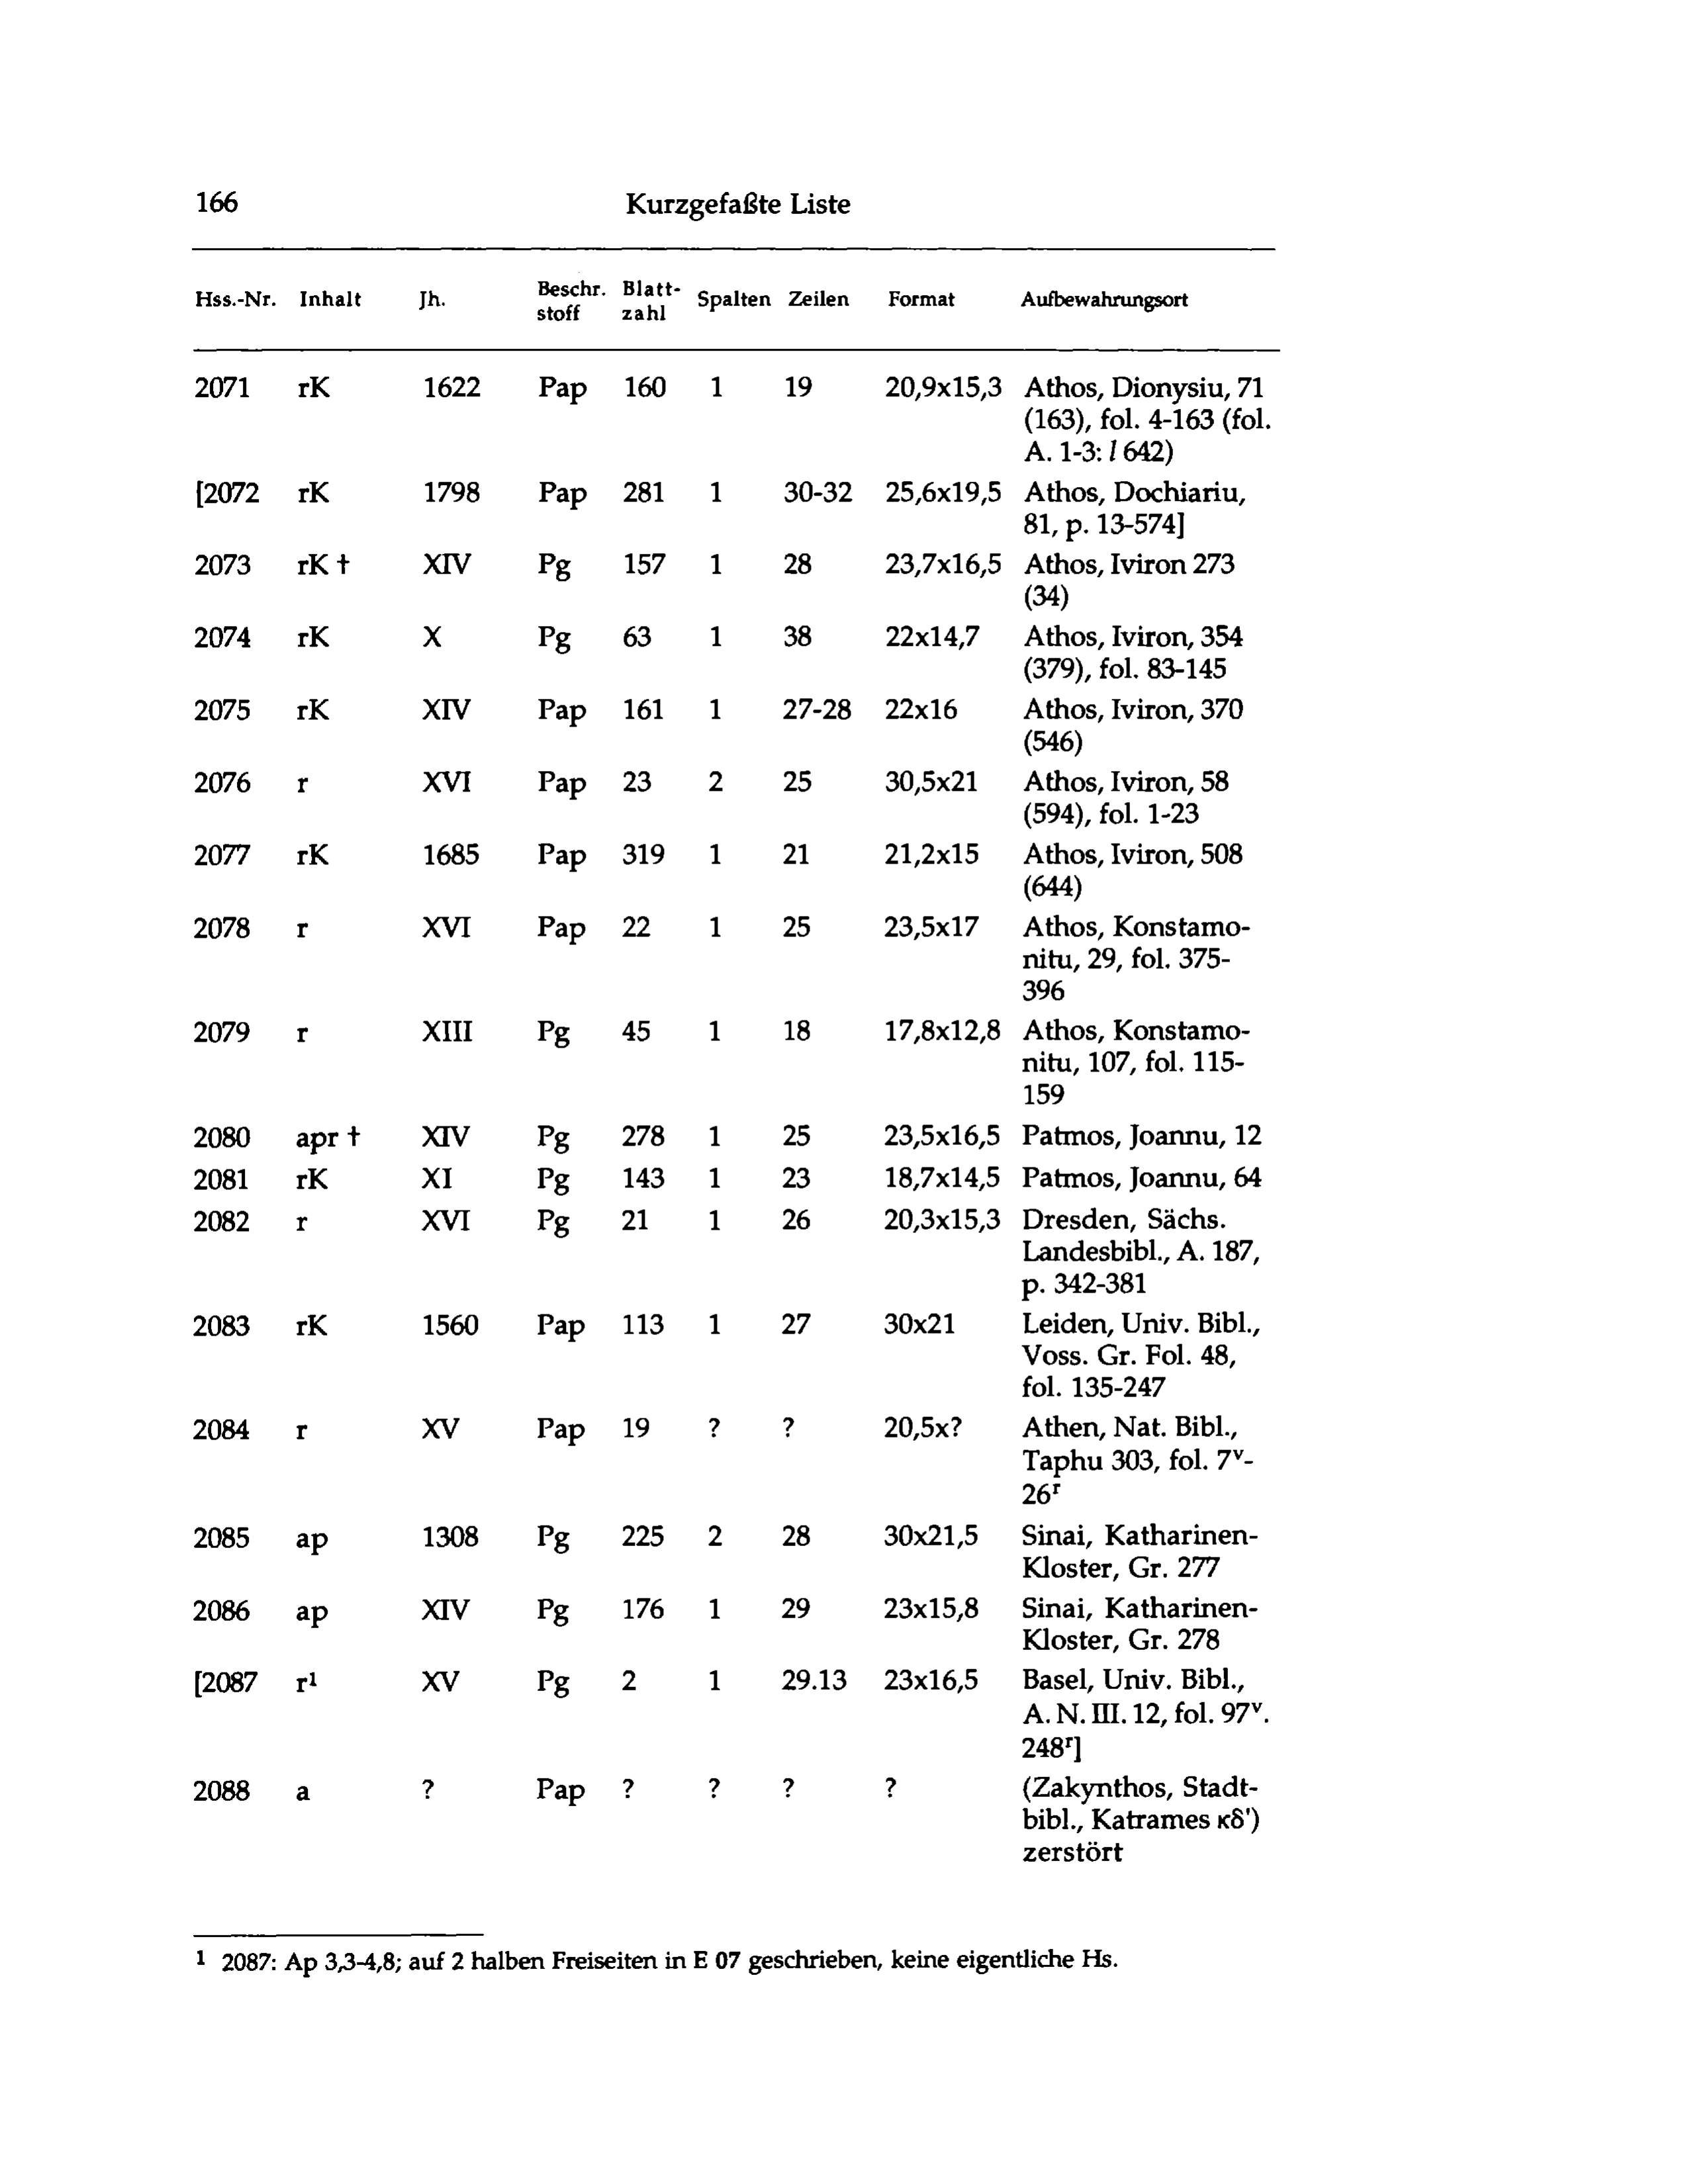 166 Kurzgefaßte Liste
Hss.-Nr. Inhalt Jh. Beschr. Blatt- Spalten Zeilen Format Aufbewahrungsort
stoff zahl
2071 rK 1622 Pap 160 1 19 20,9x15,3 Athos, Dionysiu, 71
(163), fol. 4-163 (fol.
A. 1-3: l 642)
[2072 rK 1798 Pap 281 1 30-32 25,6x19,5 Athos, Dochiariu,
81, p. 13-574]
2073 rK † XIV Pg 157 1 28 23,7x16,5 Athos, Iviron 273
(34)
2074 rK X Pg 63 1 38 22x14,7 Athos, Iviron, 354
(379), fol. 83-145
2075 rK XIV Pap 161 1 27-28 22x16 Athos, Iviron, 370
(546)
2076 r XVI Pap 23 2 25 30,5x21 Athos, Iviron, 58
(594), fol. 1-23
2077 rK 1685 Pap 319 1 21 21,2x15 Athos, Iviron, 508
(644)
2078 r XVI Pap 22 1 25 23,5x17 Athos, Konstamo-
nitu, 29, fol. 375-
396
2079 r XIII Pg 45 1 18 17,8x12,8 Athos, Konstamo-
nitu, 107, fol. 115-
159
2080 apr † XIV Pg 278 1 25 23,5x16,5 Patmos, Joannu, 12
2081 rK XI Pg 143 1 23 18,7x14,5 Patmos, Joannu, 64
2082 r XVI Pg 21 1 26 20,3x15,3 Dresden, Sächs.
Landesbibl., A. 187,
p. 342-381
2083 rK 1560 Pap 113 1 27 30x21 Leiden, Univ. Bibl.,
Voss. Gr. Fol. 48,
fol. 135-247
2084 r XV Pap 19 ? ? 20,5x? Athen, Nat. Bibl.,
Taphu 303, fol. 7ᵛ-
26ʳ
2085 ap 1308 Pg 225 2 28 30x21,5 Sinai, Katharinen-
Kloster, Gr. 277
2086 ap XIV Pg 176 1 29 23x15,8 Sinai, Katharinen-
Kloster, Gr. 278
[2087 r¹ XV Pg 2 1 29.13 23x16,5 Basel, Univ. Bibl.,
A. N. III. 12, fol. 97ᵛ.
248ʳ]
2088 a ? Pap ? ? ? ? (Zakynthos, Stadt-
bibl., Katrames κδ')
zerstört
¹ 2087: Ap 3,3-4,8; auf 2 halben Freiseiten in E 07 geschrieben, keine eigentliche Hs.